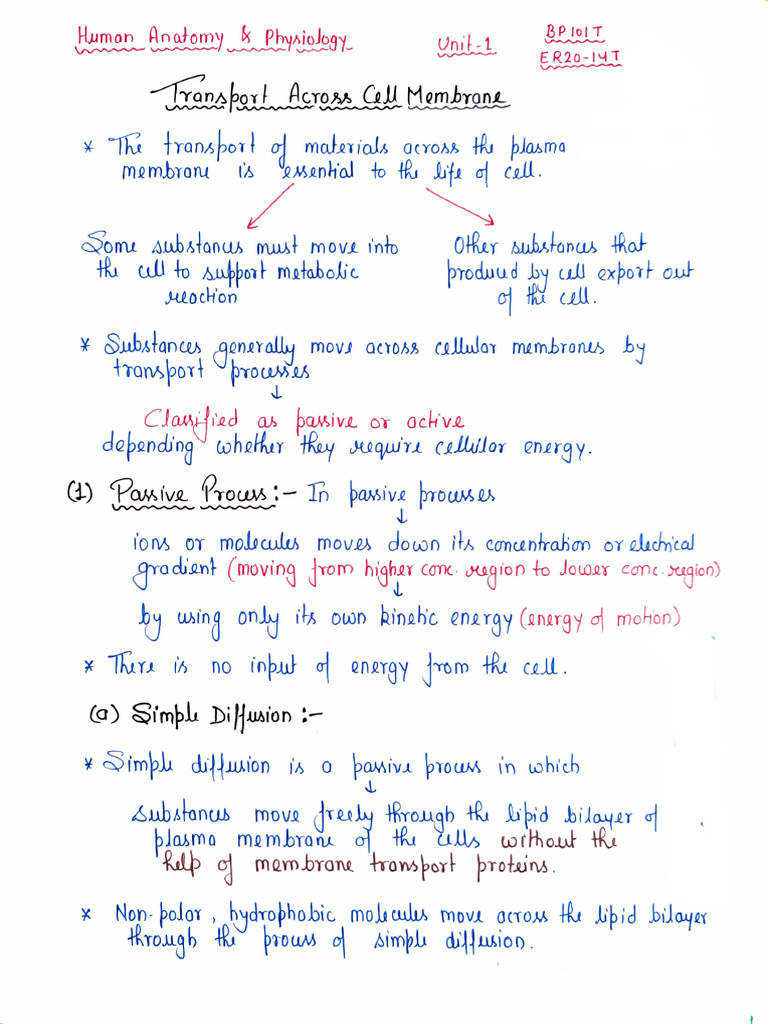 Human Anatomy & Physiology Unit-1 BP101T
ER20-14T
Transport Across Cell Membrane
* The transport of materials across the plasma
membrane is essential to the life of cell.
Some substances must move into
the cell to support metabolic
reaction
Other substances that
produced by cell export out
of the cell.
* Substances generally move across cellular membranes by
transport processes
↓
Classified as passive or active
depending whether they require cellular energy.
(1) Passive Process:- In passive processes
↓
ions or molecules moves down its concentration or electrical
gradient (moving from higher conc. region to lower conc. region)
↓
by using only its own kinetic energy (energy of motion)
* There is no input of energy from the cell.
(a) Simple Diffusion:-
* Simple diffusion is a passive process in which
↓
Substances move freely through the lipid bilayer of
plasma membrane of the cells without the
help of membrane transport proteins.
* Non-polar, hydrophobic molecules move across the lipid bilayer
through the process of simple diffusion.